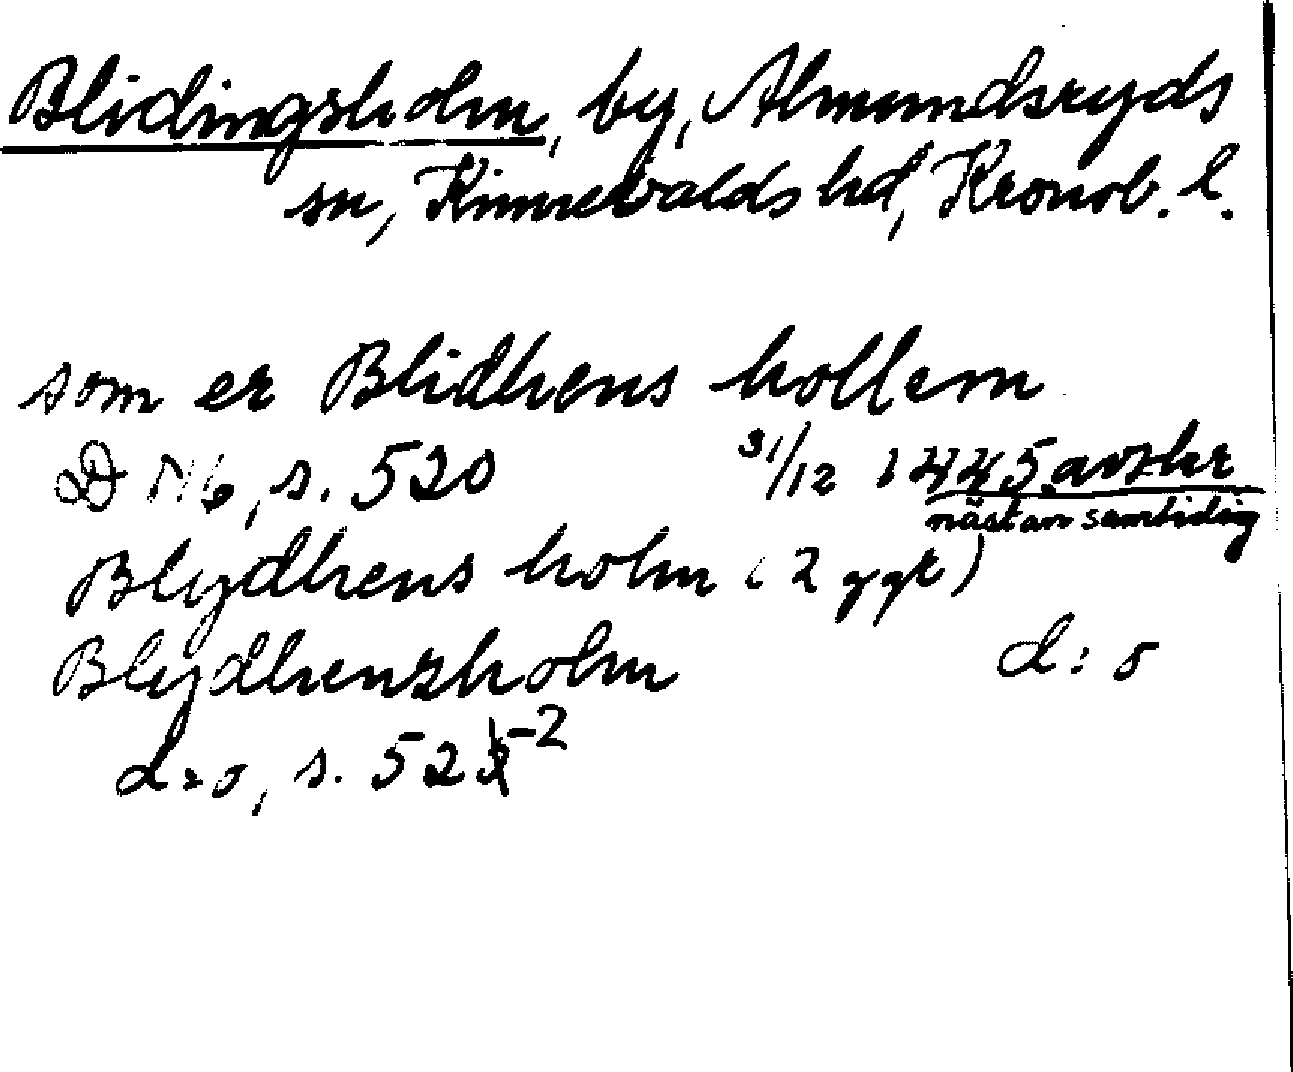 Blidingsholm, by, Almundsryds
sn, Kinnevalds hd, Kronob. l.
som er Blidhens hollem
D N 16, s. 520 31/12 1445 avskr
nästan samtidig
Blydhens holm (2 ggr)
Blydhensholm d:o
d:o, s. 521-2